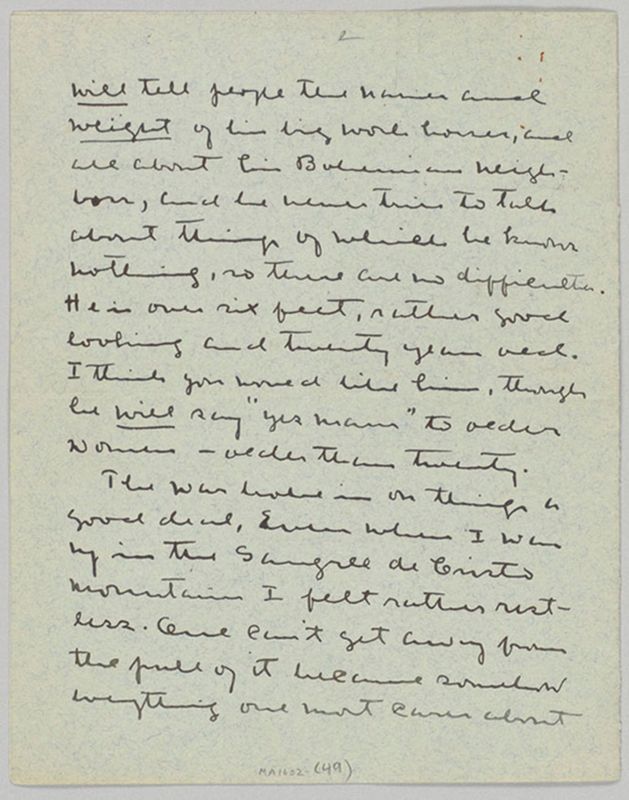 2
will tell people the names and
weight of his big work horses, and
all about his Bohemian neigh-
bors, and he never tries to talk
about things of which he knows
nothing, so there are no difficulties.
He is over six feet, rather good
looking and twenty years old.
I think you would like him, though
he will say "yes mam" to older
women – older than twenty.
The war broke in on things a
good deal, Even when I was
up in the Sangre de Cristo
mountains I felt rather rest-
less. One can't get away from
the pull of it because somehow
everything one most cares about
MA1602-(49)